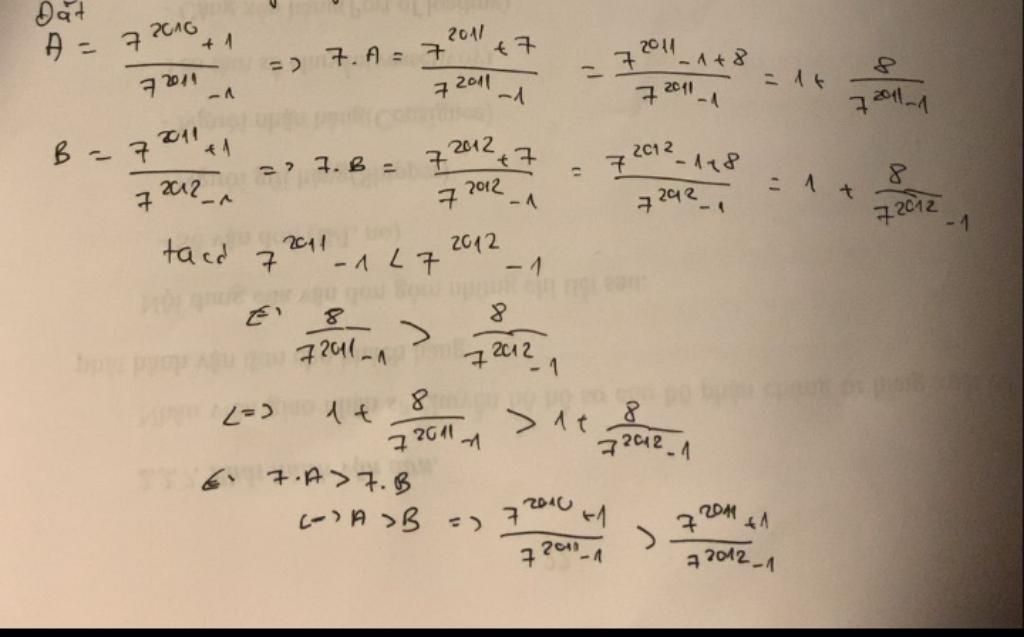 Đặt
A = \frac{7^{2010}+1}{7^{2011}-1} => 7.A = \frac{7^{2011}+7}{7^{2011}-1} = \frac{7^{2011}-1+8}{7^{2011}-1} = 1+ \frac{8}{7^{2011}-1}
B = \frac{7^{2011}+1}{7^{2012}-1} => 7.B = \frac{7^{2012}+7}{7^{2012}-1} = \frac{7^{2012}-1+8}{7^{2012}-1} = 1 + \frac{8}{7^{2012}-1}
ta có 7^{2011}-1 < 7^{2012}-1
<=> \frac{8}{7^{2011}-1} > \frac{8}{7^{2012}-1}
<=> 1+ \frac{8}{7^{2011}-1} > 1+ \frac{8}{7^{2012}-1}
<=> 7.A > 7.B
<=> A > B => \frac{7^{2010}+1}{7^{2011}-1} > \frac{7^{2011}+1}{7^{2012}-1}